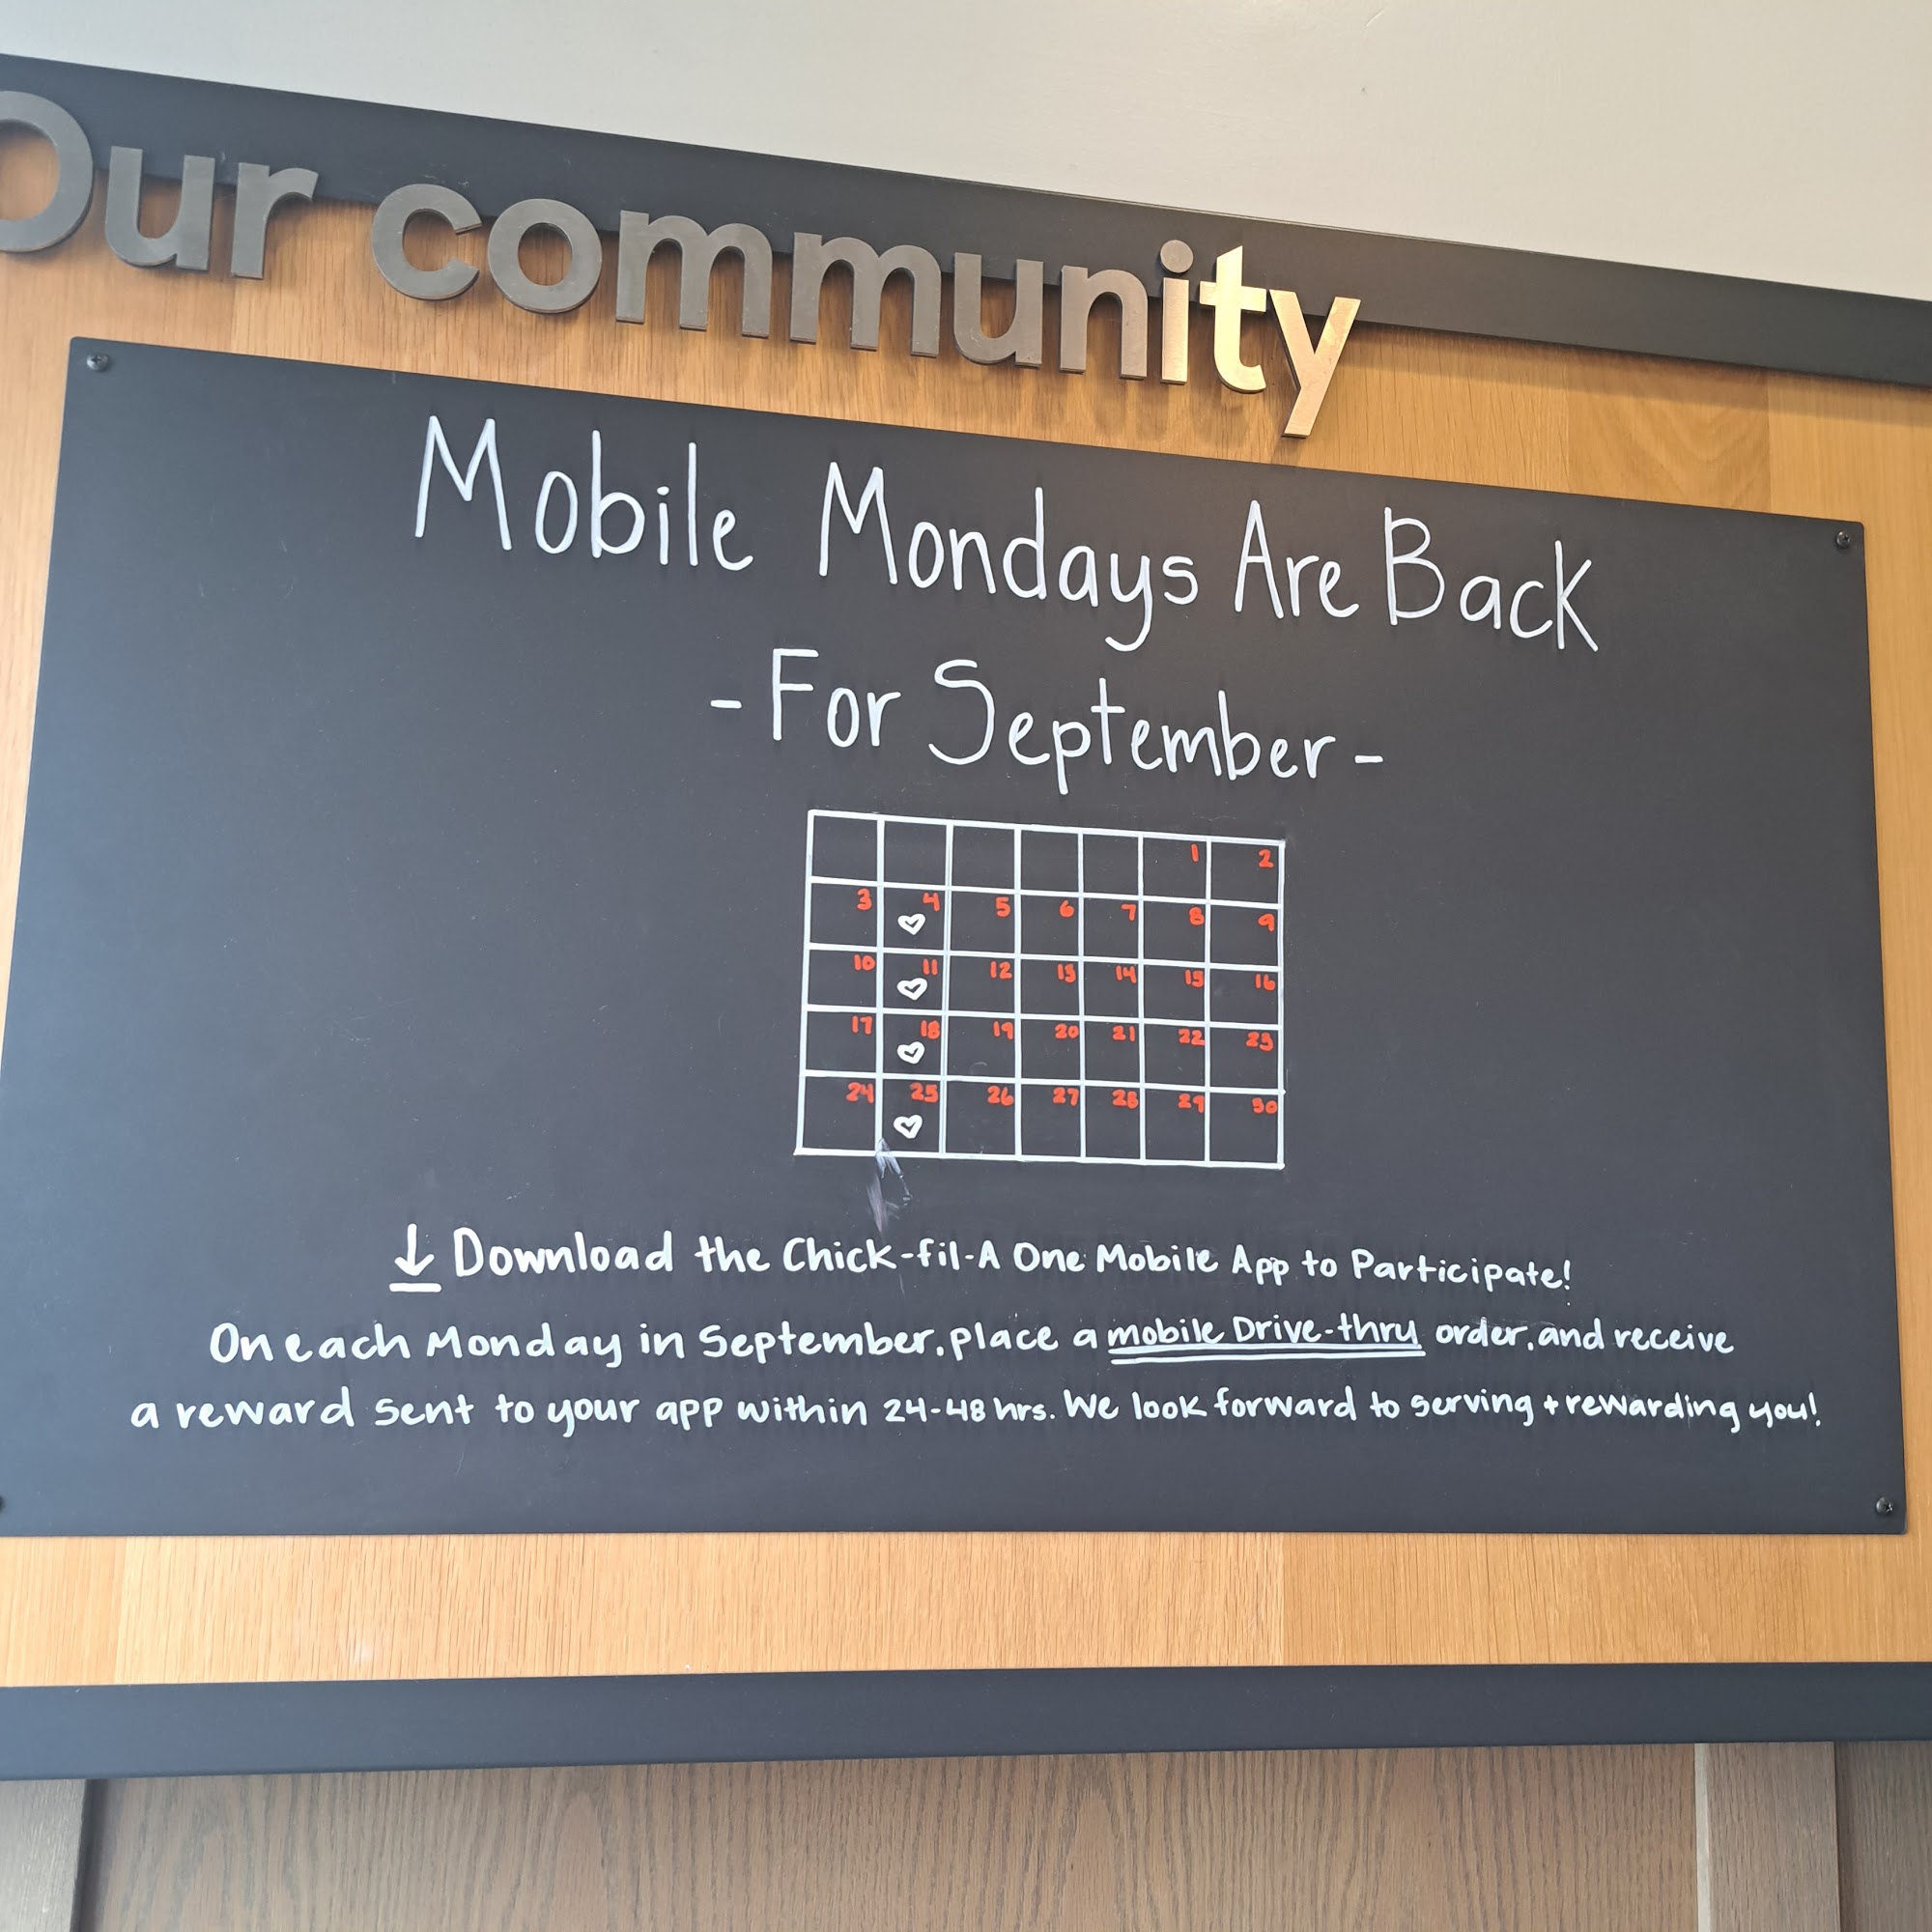 Our community
Mobile Mondays Are Back
- For September -
1 2
3 4 5 6 7 8 9
10 11 12 13 14 15 16
17 18 19 20 21 22 23
24 25 26 27 28 29 30
Download the Chick-fil-A One Mobile App to Participate!
On each Monday in September, place a mobile Drive-thru order, and receive
a reward sent to your app within 24-48 hrs. We look forward to serving + rewarding you!